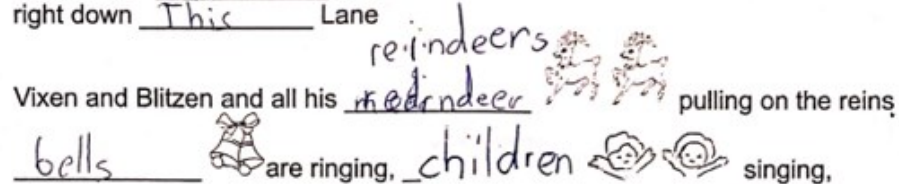 right down This Lane
reindeers
Vixen and Blitzen and all his pulling on the reins,
bells are ringing, children singing,